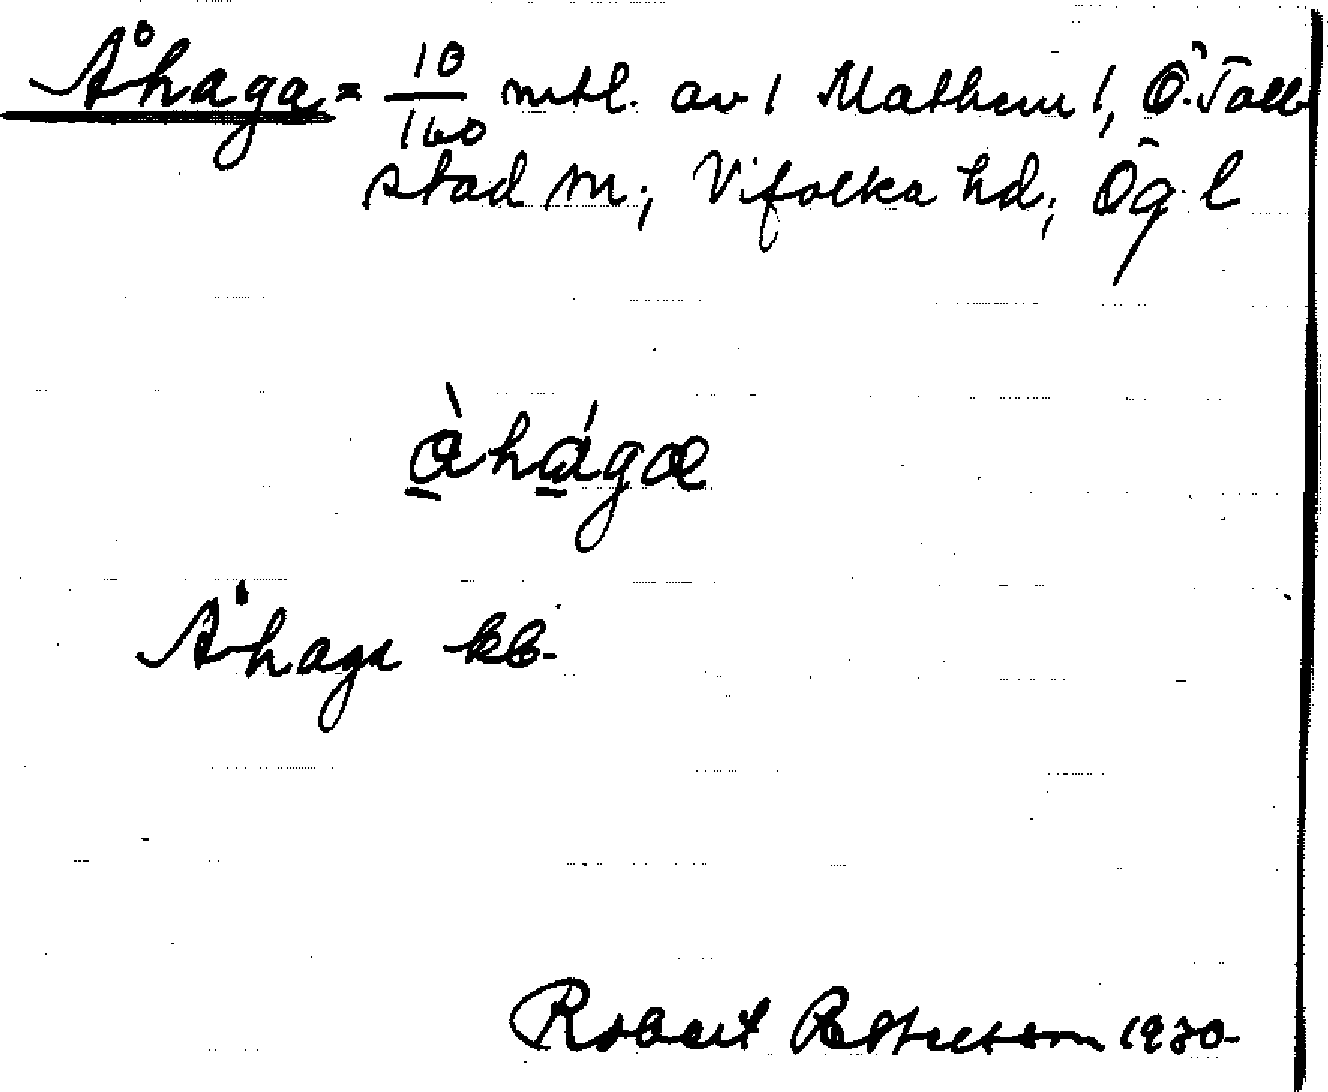 Åhaga = 10/160 mtl. av 1 Mathem 1, Ö. Toll
stad sn; Vifolka hd; Ög l
ȧ̱̀há̱gæ
Åhaga kb.
Robert Pettersson 1930.